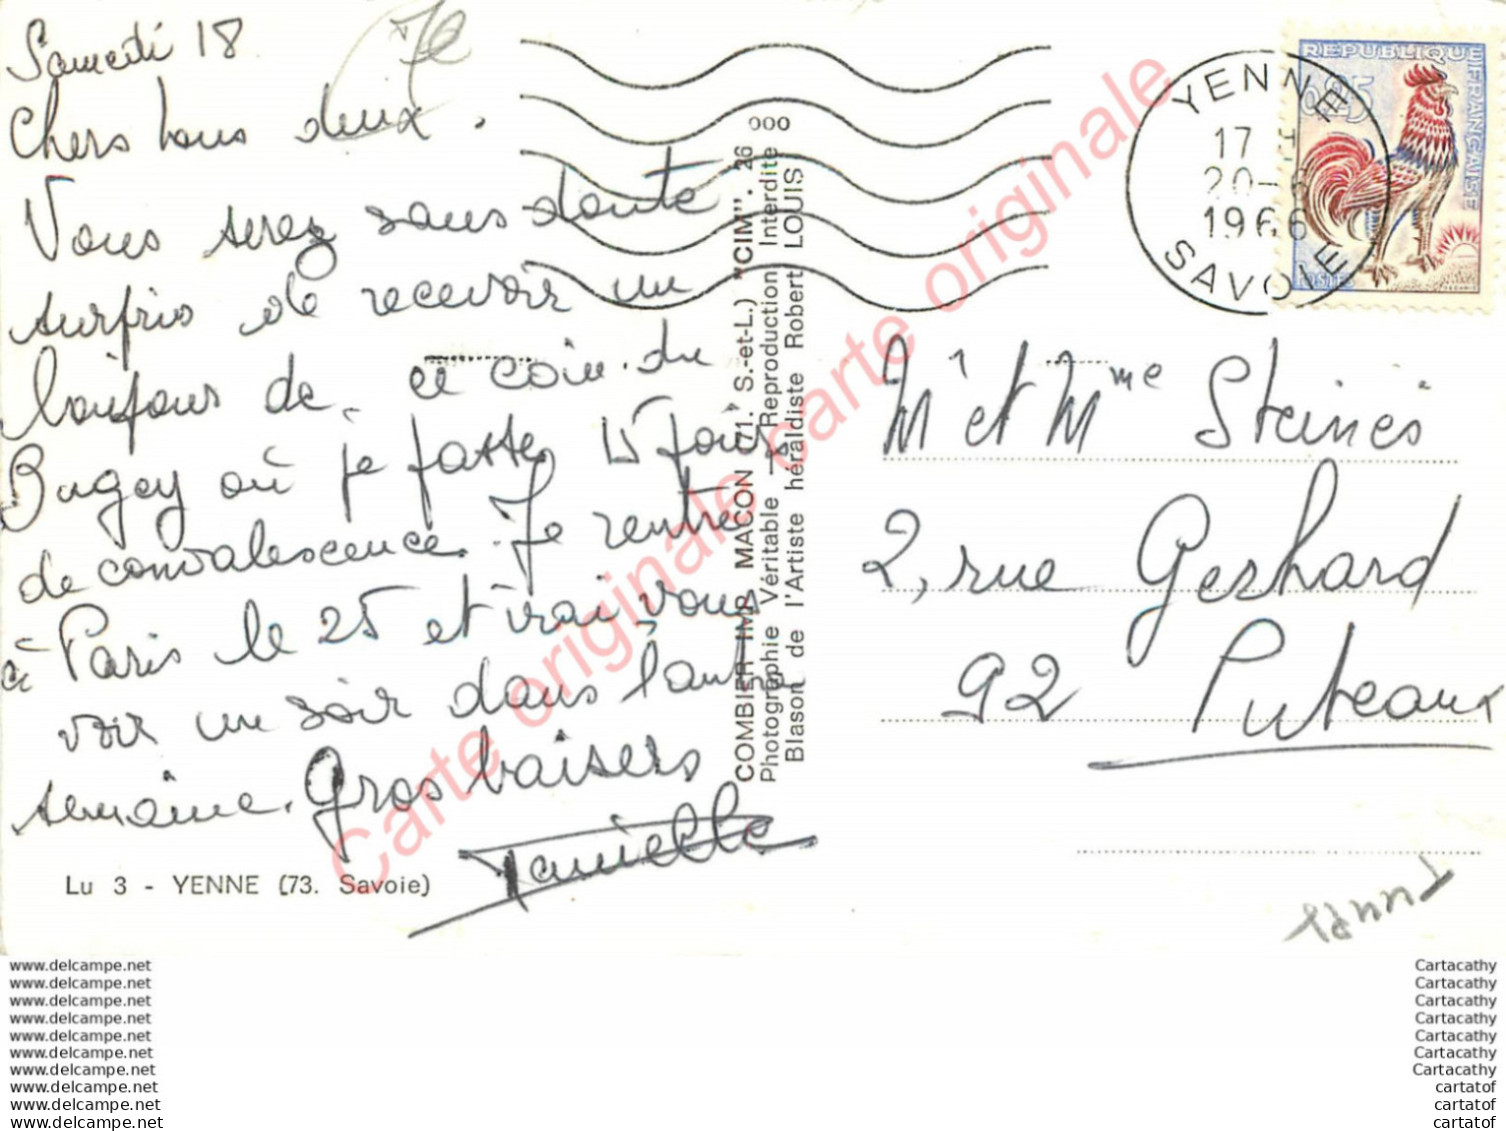 Samedi 18
Chers tous deux.
Vous serez sans doute
surpris de recevoir un
bonjour de ce coin du
Bugey où je passe 15 jours
de convalescence. Je rentre
à Paris le 25 et irai vous
voir un soir dans l'autre
semaine. Gros baisers
Danielle
Lu 3 - YENNE (73. Savoie)
COMBIER IMP. MACON (71. S.-et-L.) "CIM". 26
Photographie Véritable _ Reproduction Interdite
Blason de l'Artiste héraldiste Robert LOUIS
000
Carte originale carte originale
YENNE
17
20-
1966
SAVOIE
REPUBLIQUE FRANÇAISE
0,25
POSTES
Mr et Mme Steinès
2, rue Gerhard
92 Puteaux
YENNE
www.delcampe.net
www.delcampe.net
www.delcampe.net
www.delcampe.net
www.delcampe.net
www.delcampe.net
www.delcampe.net
www.delcampe.net
www.delcampe.net
www.delcampe.net
Cartacathy
Cartacathy
Cartacathy
Cartacathy
Cartacathy
Cartacathy
Cartacathy
cartatof
cartatof
cartatof